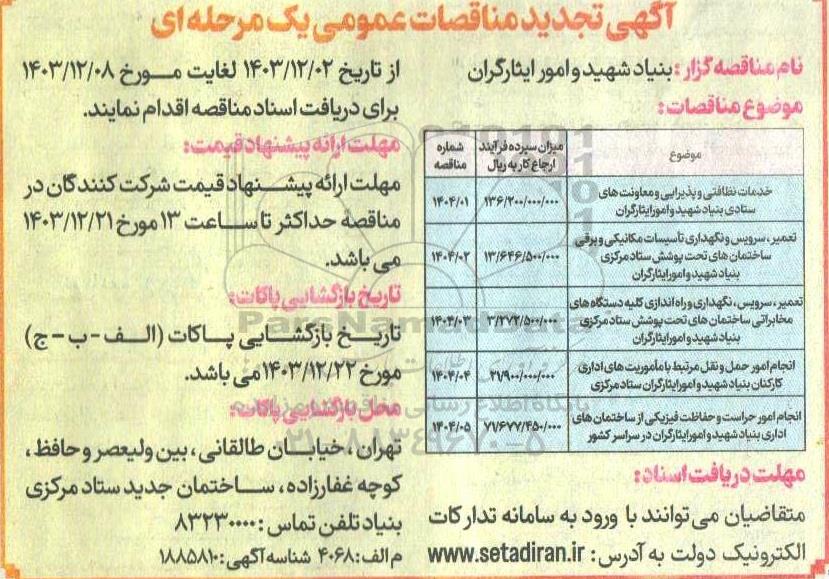 آگهی تجدید مناقصات عمومی یک مرحله ای
نام مناقصه گزار: بنیاد شهید و امور ایثارگران
موضوع مناقصات:
موضوع | میزان سپرده فرآیند ارجاع کار به ریال | شماره مناقصه
خدمات نظافتی و پذیرایی و معاونت های
ستادی بنیاد شهید و امور ایثارگران | ۱۳۶/۲۰۰/۰۰۰/۰۰۰ | ۱۴۰۴/۰۱
تعمیر، سرویس و نگهداری تأسیسات مکانیکی و برقی
ساختمان های تحت پوشش ستاد مرکزی
بنیاد شهید و امور ایثارگران | ۱۳/۶۴۶/۵۰۰/۰۰۰ | ۱۴۰۴/۰۲
تعمیر، سرویس، نگهداری و راه اندازی کلیه دستگاه های
مخابراتی ساختمان های تحت پوشش ستاد مرکزی
بنیاد شهید و امور ایثارگران | ۳/۲۷۲/۵۰۰/۰۰۰ | ۱۴۰۴/۰۳
انجام امور حمل و نقل مرتبط با مأموریت های اداری
کارکنان بنیاد شهید و امور ایثارگران ستاد مرکزی | ۲۱/۹۰۰/۰۰۰/۰۰۰ | ۱۴۰۴/۰۴
انجام امور حراست و حفاظت فیزیکی از ساختمان های
اداری بنیاد شهید و امور ایثارگران در سراسر کشور | ۷۷/۶۷۷/۴۵۰/۰۰۰ | ۱۴۰۴/۰۵
مهلت دریافت اسناد:
متقاضیان می توانند با ورود به سامانه تدارکات
الکترونیک دولت به آدرس: www.setadiran.ir
از تاریخ ۱۴۰۳/۱۲/۰۲ لغایت مورخ ۱۴۰۳/۱۲/۰۸
برای دریافت اسناد مناقصه اقدام نمایند.
مهلت ارائه پیشنهاد قیمت:
مهلت ارائه پیشنهاد قیمت شرکت کنندگان در
مناقصه حداکثر تا ساعت ۱۳ مورخ ۱۴۰۳/۱۲/۲۱
می باشد.
تاریخ بازگشایی پاکات:
تاریخ بازگشایی پاکات (الف - ب - ج)
مورخ ۱۴۰۳/۱۲/۲۲ می باشد.
محل بازگشایی پاکات:
تهران، خیابان طالقانی، بین ولیعصر و حافظ،
کوچه غفارزاده، ساختمان جدید ستاد مرکزی
بنیاد تلفن تماس: ۸۳۲۳۰۰۰۰
م الف: ۴۰۶۸ شناسه آگهی: ۱۸۸۵۸۱۰
ParsNamadData
پایگاه اطلاع رسانی
۰۲۱-۸۸۳۴۹۶۷۰-۵